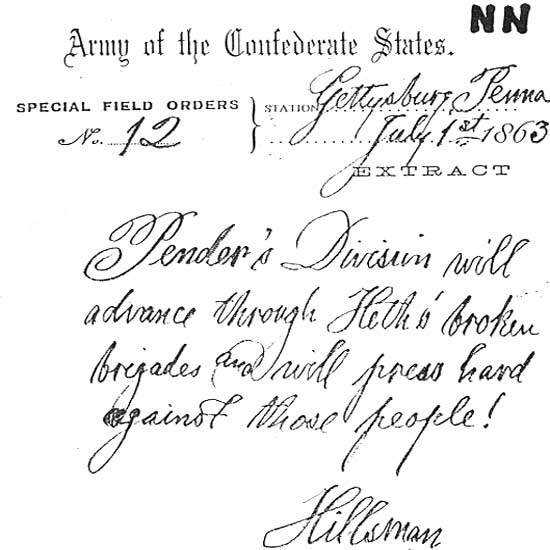 NN
Army of the Confederate States.
SPECIAL FIELD ORDERS
No. 12
STATION Gettysburg, Penna
July 1st 1863
EXTRACT
Pender's Division will
advance through Heth's broken
brigades and will press hard
against those people!
Hillsman